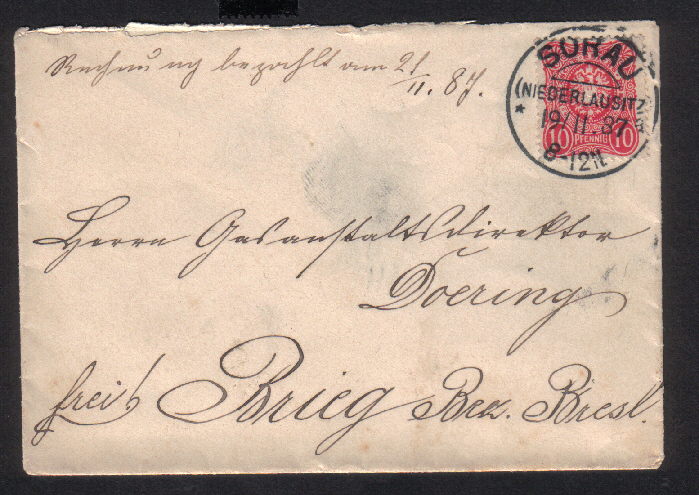 Rechnung bezahlt am 21/11. 87.
SORAU
(NIEDERLAUSITZ)
* 19/11 87
8-12N.
10 PFENNIG 10
Herrn Gasanstaltsdirektor
Doering
frei! Brieg Bez. Bresl.